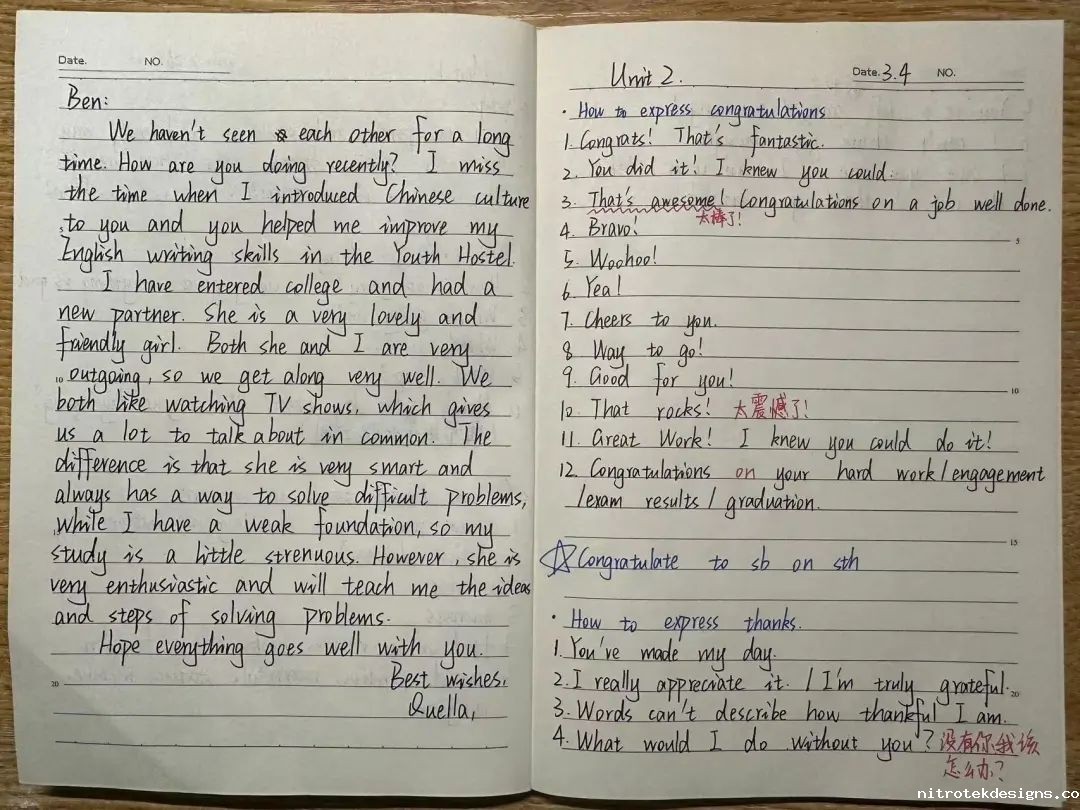 Date. NO.
Ben:
We haven't seen each other for a long
time. How are you doing recently? I miss
the time when I introduced Chinese culture
5 to you and you helped me improve my
English writing skills in the Youth Hostel.
I have entered college and had a
new partner. She is a very lovely and
friendly girl. Both she and I are very
10 outgoing, so we get along very well. We
both like watching TV shows, which gives
us a lot to talk about in common. The
difference is that she is very smart and
always has a way to solve difficult problems,
15 while I have a weak foundation, so my
study is a little strenuous. However, she is
very enthusiastic and will teach me the ideas
and steps of solving problems.
Hope everything goes well with you.
20 Best wishes,
Quella,
Unit 2. Date. 3.4 NO.
· How to express congratulations
1. Congrats! That's fantastic.
2. You did it! I knew you could.
3. That's awesome! Congratulations on a job well done.
太棒了!
4. Bravo! 5
5. Woohoo!
6. Yea!
7. Cheers to you.
8. Way to go!
9. Good for you! 10
10. That rocks! 太震憾了!
11. Great Work! I knew you could do it!
12. Congratulations on your hard work/engagement
/exam results/graduation.
15
☆Congratulate to sb on sth
· How to express thanks.
1. You've made my day.
2. I really appreciate it. / I'm truly grateful. 20
3. Words can't describe how thankful I am.
4. What would I do without you? 没有你我该
怎么办?
nitrotekdesigns.co